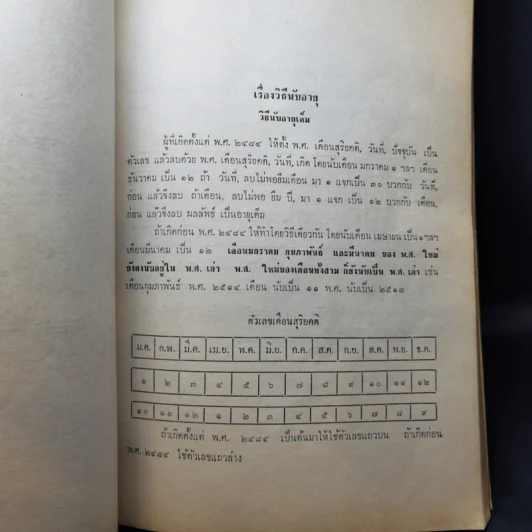 เรื่องวิธีนับอายุ
วิธีนับอายุเต็ม
ผู้ที่เกิดตั้งแต่ พ.ศ. ๒๔๘๔ ให้ตั้ง พ.ศ. เดือนสุริยคติ, วันที่, ปัจจุบัน เป็น
ตัวเลข แล้วลบด้วย พ.ศ. เดือนสุริยคติ, วันที่, เกิด โดยนับเดือน มกราคม ๑ ฯลฯ เดือน
ธันวาคม เป็น ๑๒ ถ้า วันที่, ลบไม่พอยืมเดือน มา ๑ แจกเป็น ๓๐ บวกกับ วันที่,
ก่อน แล้วจึงลบ ถ้าเดือน, ลบไม่พอ ยืม ปี, มา ๑ แจก เป็น ๑๒ บวกกับ เดือน,
ก่อน แล้วจึงลบ ผลลัพธ์ เป็นอายุเต็ม
ถ้าเกิดก่อน พ.ศ. ๒๔๘๔ ให้ทำโดยวิธีเดียวกัน โดยนับเดือน เมษายน เป็น ๑ ฯลฯ
เดือนมีนาคม เป็น ๑๒ เดือนมกราคม กุมภาพันธ์ และมีนาคม ของ พ.ศ. ใหม่
ยังคงนับอยู่ใน พ.ศ. เก่า พ.ศ. ใหม่ของเดือนทั้งสาม ก็ยังนับเป็น พ.ศ. เก่า เช่น
เดือนกุมภาพันธ์ พ.ศ. ๒๕๑๔ เดือน นับเป็น ๑๑ พ.ศ. นับเป็น ๒๕๑๓
ตัวเลขเดือนสุริยคติ
ม.ค. ก.พ. มี.ค. เม.ย. พ.ค. มิ.ย. ก.ค. ส.ค. ก.ย. ต.ค. พ.ย. ธ.ค.
๑ ๒ ๓ ๔ ๕ ๖ ๗ ๘ ๙ ๑๐ ๑๑ ๑๒
๑๐ ๑๑ ๑๒ ๑ ๒ ๓ ๔ ๕ ๖ ๗ ๘ ๙
ถ้าเกิดตั้งแต่ พ.ศ. ๒๔๘๔ เป็นต้นมาให้ใช้ตัวเลขแถวบน ถ้าเกิดก่อน
พ.ศ. ๒๔๘๔ ใช้ตัวเลขแถวล่าง